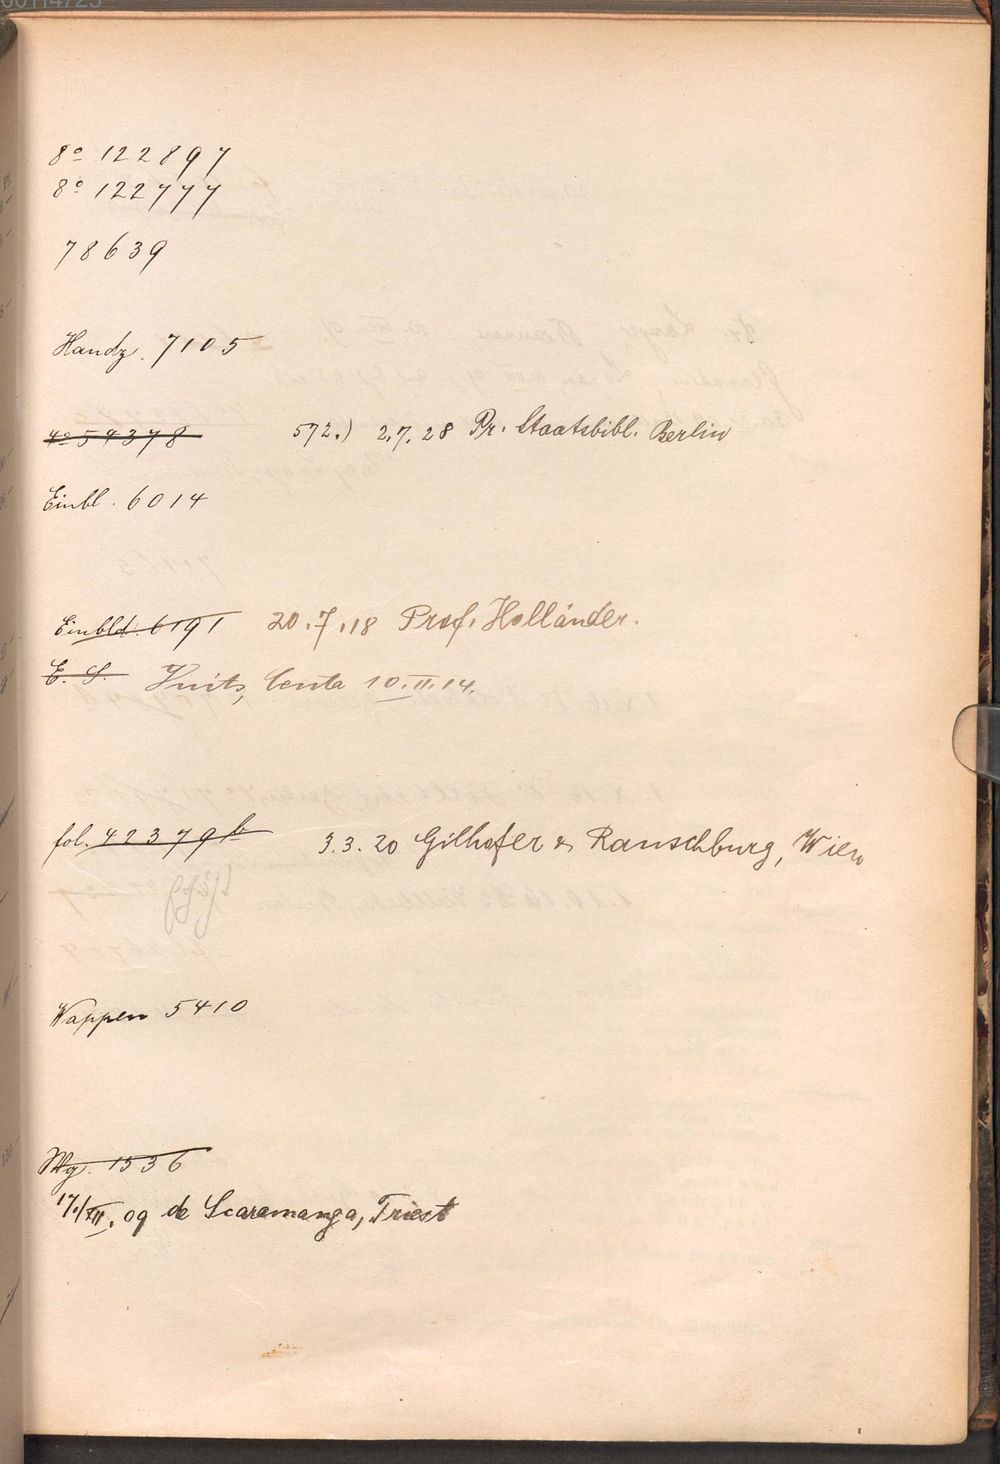 8º 122897
8º 122777
78639
Handz. 7105
4º 54378 572.) 2.7.28 Pr. Staatsbibl. Berlin
Einbl. 6014
Einbld. 6191 20.7.18 Prof. Holländer.
E. S. Knits, Centa 10.II.14.
fol. 42379b 3.3.20 Gilhofer & Ranschburg, Wien
Wappen 5410
Mg. 1536
17./XII. 09 de Scaremanga, Triest